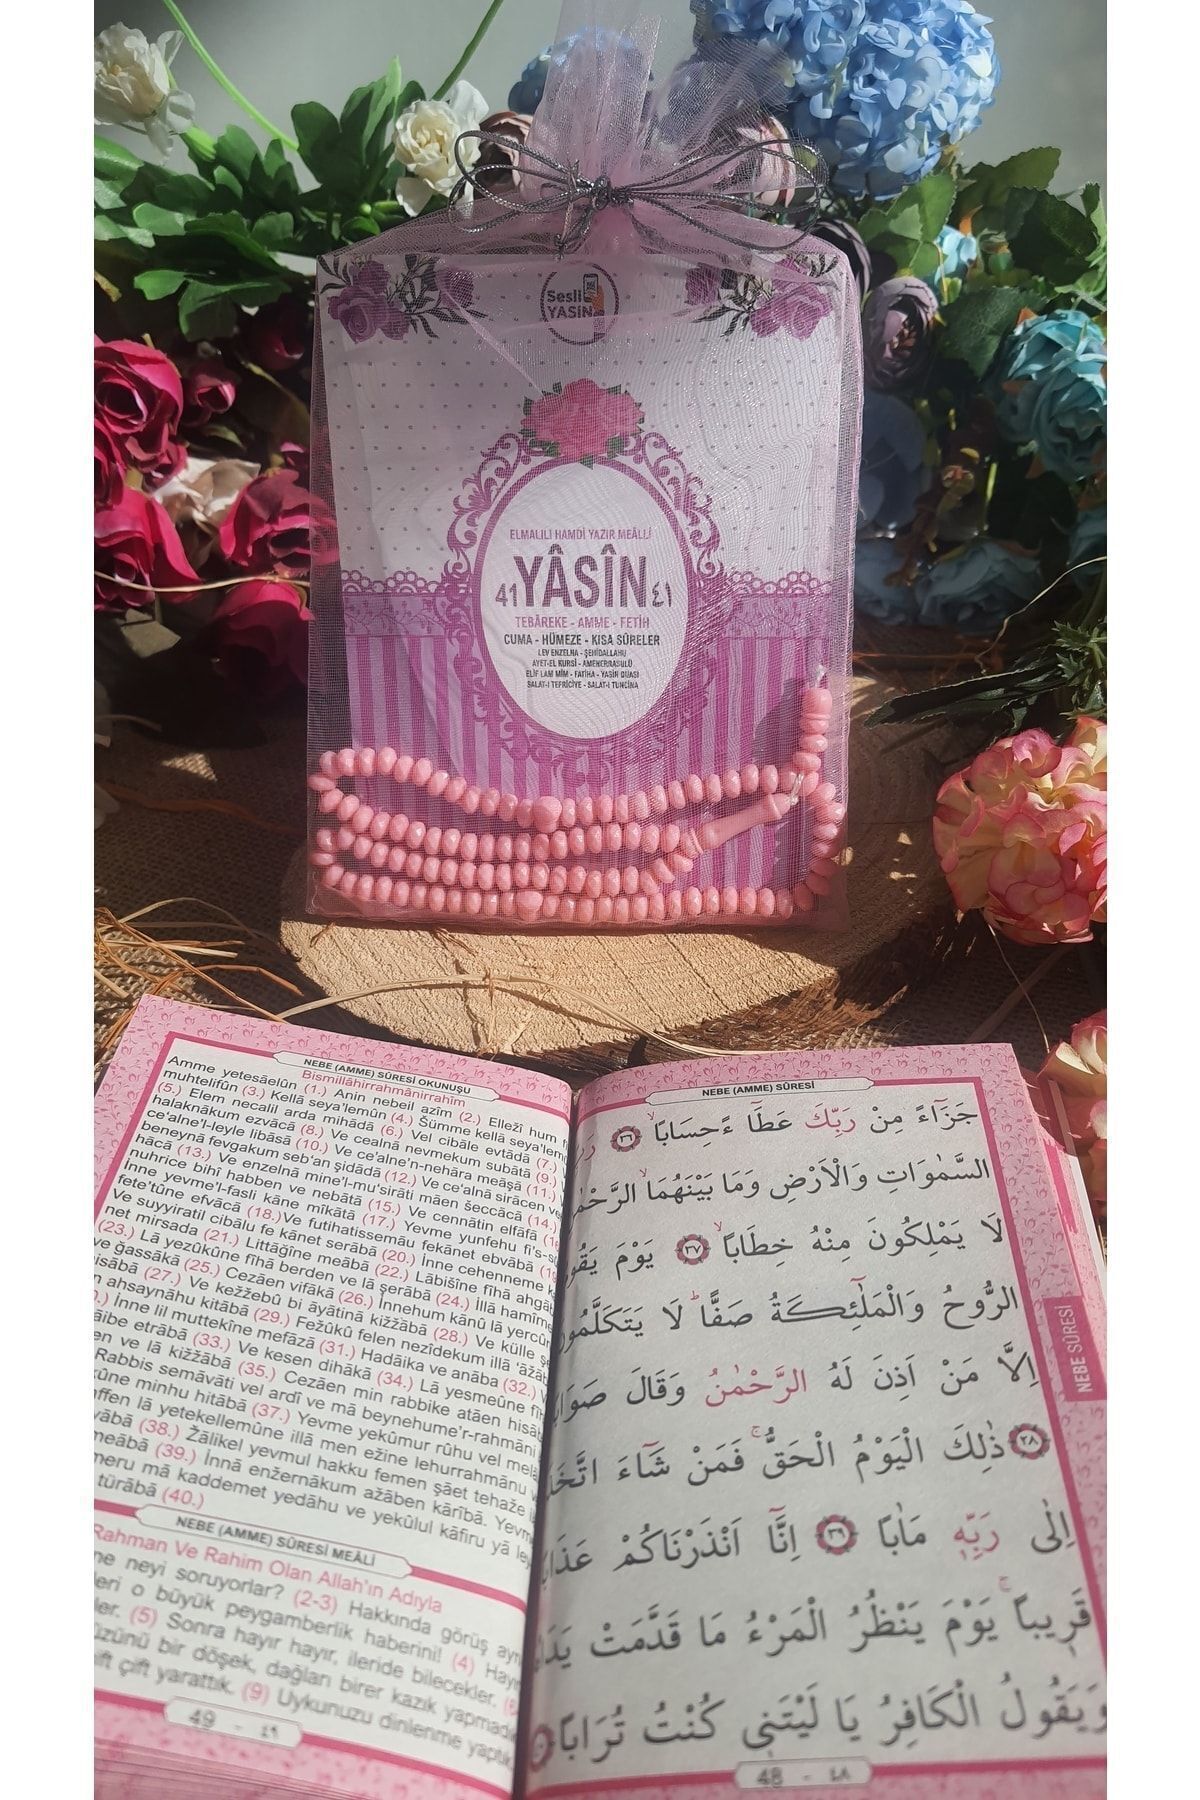 Sesli
YASİN
ELMALILI HAMDİ YAZIR MEÂLLİ
41 YÂSÎN ٤١
TEBÂREKE - AMME - FETİH
CUMA - HÜMEZE - KISA SÛRELER
LEV ENZELNA - ŞEHİDALLAHU
AYET-EL KURSİ - AMENERRASULÜ
ELİF LAM MİM - FATİHA - YASİN DUASI
SALAT-I TEFRİCİYE - SALAT-I TUNCİNA
NEBE (AMME) SÛRESİ OKUNUŞU
Bismillâhirrahmânirrahîm
Amme yetesâelûn (1.) Anin nebeil azîm (2.) Ellezî hum
muhtelifûn (3.) Kellâ seya'lemûn (4.) Sümme kellâ seya'lemûn
(5.) Elem necalil arda mihâdâ (6.) Vel cibâle evtâdâ (7.)
halaknâkum ezvâcâ (8.) Ve cealnâ nevmekum subâtâ (9.)
ce'alne'l-leyle libâsâ (10.) Ve ce'alne'n-nehâra meâşâ (11.)
beneynâ fevgakum seb'an şidâdâ (12.) Ve ce'alnâ sirâcen
hâcâ (13.) Ve enzelnâ mine'l-mu'sirâti mâen seccâcâ (14.)
nuhrice bihî habben ve nebâtâ (15.) Ve cennâtin elfâfâ
İnne yevme'l-fasli kâne mîkâtâ (17.) Yevme yunfehu fi's-
fete'tûne efvâcâ (18.) Ve futihatissemâu fekânet ebvâbâ
Ve suyyiratil cibâlu fe kânet serâbâ (20.) İnne cehenneme
net mirsada (21.) Littâğîne meâbâ (22.) Lâbisîne fîhâ ahgâbâ
(23.) Lâ yezûkûne fîhâ berden ve lâ şerâbâ (24.) İllâ hamîmen
ve ğassâkâ (25.) Cezâen vifâkâ (26.) İnnehum kânû lâ yercûne
hisâbâ (27.) Ve kezzebû bi âyâtinâ kizzâbâ (28.) Ve külle
ahsaynâhu kitâbâ (29.) Fezûkû felen nezîdekum illâ
İnne lil muttekîne mefâzâ (31.) Hadâika ve anâba (32.)
etrâbâ (33.) Ve kesen dihâkâ (34.) Lâ yesmeûne
ve lâ kizzâbâ (35.) Cezâen min rabbike atâen hisâbâ
Rabbis semâvâti vel ardî ve mâ beynehume'r-rahmâni
minhu hitâbâ (37.) Yevme yekûmur rûhu vel
lâ yetekellemûne illâ men ezine lehurrahmânu
(38.) Zâlikel yevmul hakku femen şâet tehaze
meâbâ (39.) İnnâ enzernâkum azâben kârîbâ. Yevme
mâ kaddemet yedâhu ve yekûlul kâfiru yâ
türâbâ (40.)
NEBE (AMME) SÛRESİ MEÂLİ
Rahman Ve Rahim Olan Allah'ın Adıyla
neyi soruyorlar? (2-3) Hakkında görüş
o büyük peygamberlik haberini! (4) Hayır
(5) Sonra hayır hayır, ileride bilecekler.
bir döşek, dağları birer kazık yapmadık
çift yarattık. (9) Uykunuzu dinlenme yaptık
49 - ٤٩
NEBE (AMME) SÛRESİ
جَزَٓاءً مِنْ رَبِّكَ عَطَٓاءً حِسَاباًۙ ﴿٣٦﴾
السَّمٰوَاتِ وَالْاَرْضِ وَمَا بَيْنَهُمَا الرَّحْمٰنِ
لَا يَمْلِكُونَ مِنْهُ خِطَاباًۚ ﴿٣٧﴾ يَوْمَ يَقُومُ
الرُّوحُ وَالْمَلٰٓئِكَةُ صَفًّاۜ لَا يَتَكَلَّمُونَ
اِلَّا مَنْ اَذِنَ لَهُ الرَّحْمٰنُ وَقَالَ صَوَاباً
﴿٣٨﴾ ذٰلِكَ الْيَوْمُ الْحَقُّۚ فَمَنْ شَٓاءَ اتَّخَذَ
اِلٰى رَبِّه۪ مَاٰباً ﴿٣٩﴾ اِنَّٓا اَنْذَرْنَاكُمْ عَذَاباً
قَر۪يباًۚ يَوْمَ يَنْظُرُ الْمَرْءُ مَا قَدَّمَتْ يَدَاهُ
وَيَقُولُ الْكَافِرُ يَا لَيْتَن۪ي كُنْتُ تُرَاباً
NEBE SÛRESİ
48 - ٤٨